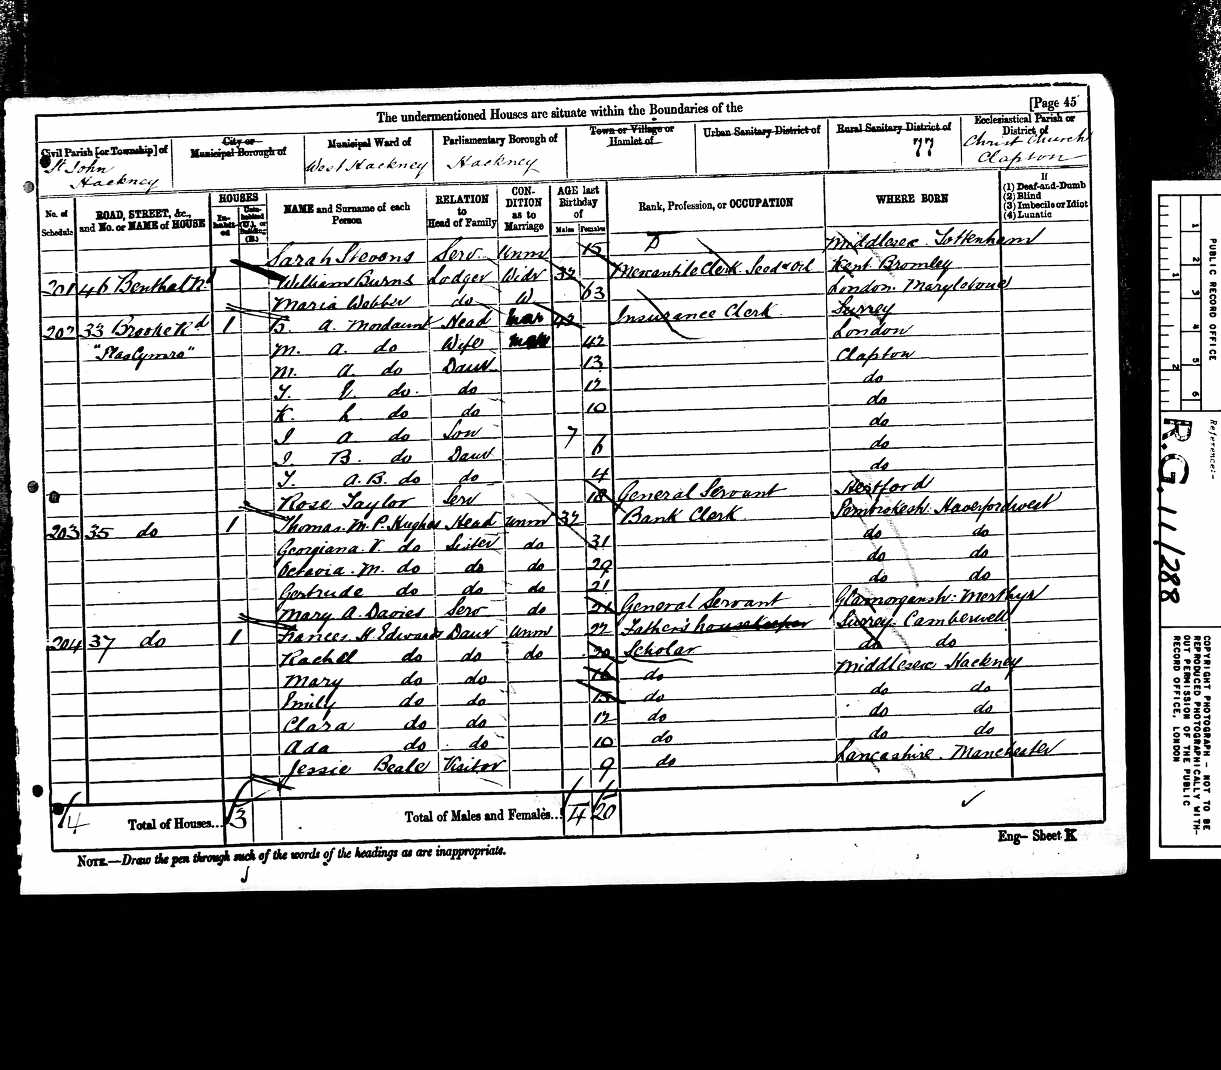 The undermentioned Houses are situate within the Boundaries of the [Page 45
Civil Parish [or Township] of St John Hackney
City or Municipal Borough of
Municipal Ward of West Hackney
Parliamentary Borough of Hackney
Town or Village or Hamlet of
Urban Sanitary District of
Rural Sanitary District of 77
Ecclesiastical Parish or District of Christ Church Clapton
No. of Schedule
ROAD, STREET, &c., and No. or NAME of HOUSE
HOUSES
In-habit-ed
Unin-habited (U.), or Building (B.)
NAME and Surname of each Person
RELATION to Head of Family
CON-DITION as to Marriage
AGE last Birthday of
Males Females
Rank, Profession, or OCCUPATION
WHERE BORN
If
(1) Deaf-and-Dumb
(2) Blind
(3) Imbecile or Idiot
(4) Lunatic
Sarah Stevens Serv Unm 15 D Middlesex Tottenham
201 46 Benthal Rd William Burns Lodger Widr 32 Mercantile Clerk Seed & Oil Kent Bromley
Maria Webber do W 63 London Marylebone
202 33 Brooke Rd 1 B. A. Mordaunt Head Mar 42 Insurance Clerk Surrey
M. A. do Wife Mar 42 London
M. A. do Daur 13 Clapton
do do 12 do
K. L. do do 10 do
A do Son 7 do
B. do Daur 6 do
A. B. do do 4 do
Rose Taylor Serv 18 General Servant Hertford
203 35 do 1 Thomas M. P. Hughes Head Unm 37 Bank Clerk Pembrokesh. Haverfordwest
Georgiana V. do Sister do 31 do do
Octavia M. do do do 29 do do
Gertrude do do do 21 do do
Mary A. Davies Serv do 21 General Servant Glamorgansh: Merthyr
204 37 do 1 Frances H Edwards Daur Unm 22 Father's housekeeper Surrey Camberwell
Rachel do do do 20 Scholar do do
Mary do do 16 do Middlesex Hackney
Emily do do 15 do do do
Clara do do 12 do do do
Ada do do 10 do do do
Jessie Beale Visitor 9 do Lancashire Manchester
4 Total of Houses... 3 Total of Males and Females... 4 20
Eng— Sheet K
NOTE.—Draw the pen through such of the words of the headings as are inappropriate.
PUBLIC RECORD OFFICE
1 2 3 4 5 6
1 2
Reference:-
R.G. 11/288
COPYRIGHT PHOTOGRAPH - NOT TO BE REPRODUCED PHOTOGRAPHICALLY WITH-OUT PERMISSION OF THE PUBLIC RECORD OFFICE, LONDON